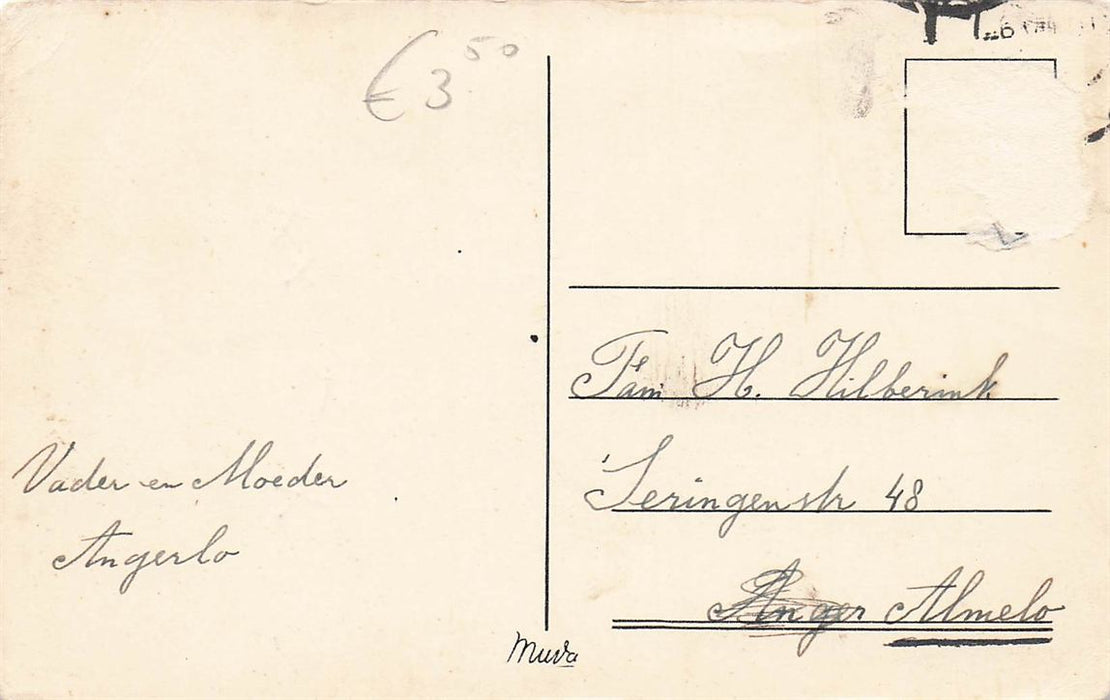 € 3 50
Vader en Moeder
Angerlo
Fam H. Hilberink
Seringenstr 48
Anger Almelo
Muva